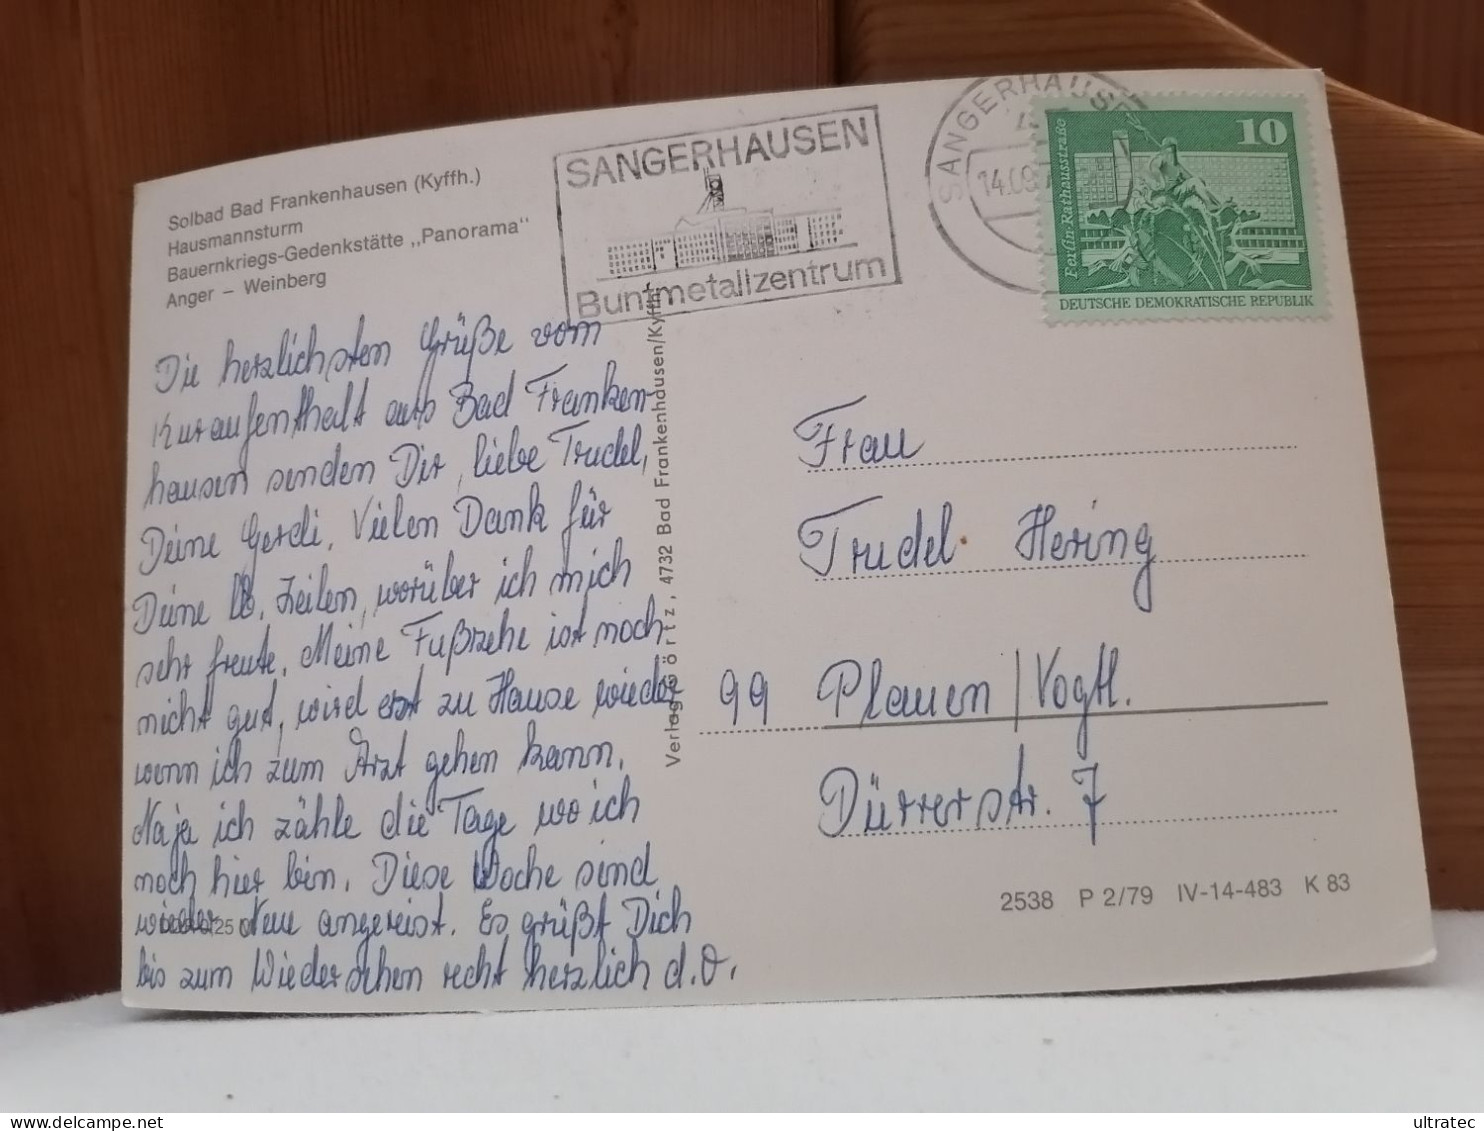 Solbad Bad Frankenhausen (Kyffh.)
Hausmannsturm
Bauernkriegs-Gedenkstätte „Panorama"
Anger – Weinberg
SANGERHAUSEN
Buntmetallzentrum
SANGERHAUSE
14.09.
10
Berlin-Rathausstraße
DEUTSCHE DEMOKRATISCHE REPUBLIK
Die herzlichsten Grüße vom
Kuraufenthalt aus Bad Franken-
hausen senden Dir, liebe Trudel,
Deine Gerdi. Vielen Dank für
Deine lb. Zeilen, worüber ich mich
sehr freute. Meine Fußzehe ist noch
nicht gut, wird erst zu Hause wieder
wenn ich zum Arzt gehen kann.
Naja ich zähle die Tage wo ich
noch hier bin. Diese Woche sind
wieder Neue angereist. Es grüßt Dich
bis zum Wiedersehen recht herzlich d.O.
Verlag Görtz, 4732 Bad Frankenhausen/Kyffh.
Frau
Trudel Hering
99 Plauen/Vogtl.
Dürrerstr. 7
2538 P 2/79 IV-14-483 K 83
ultratec